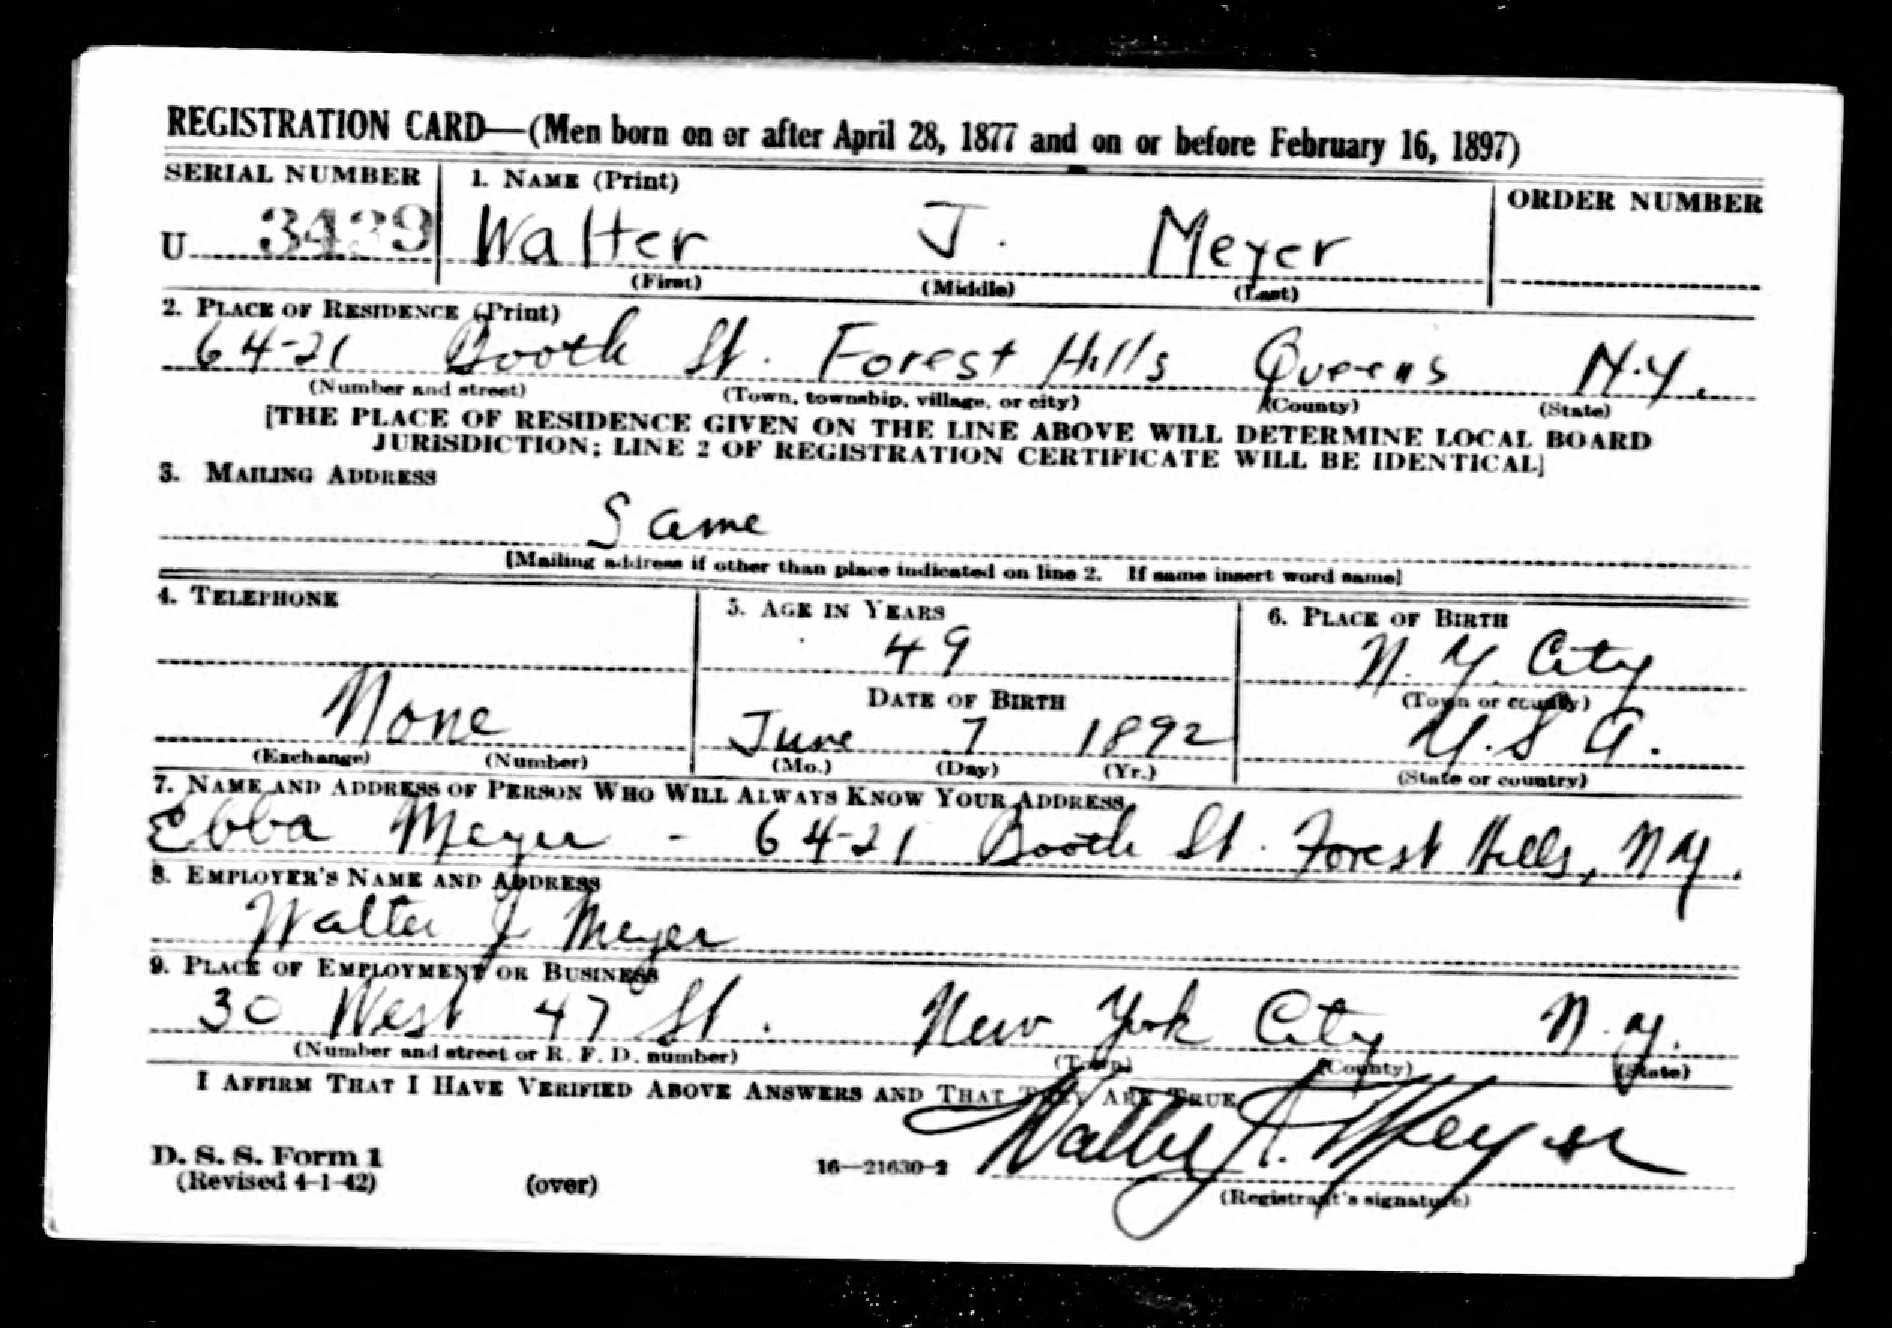 REGISTRATION CARD—(Men born on or after April 28, 1877 and on or before February 16, 1897)
SERIAL NUMBER 1. NAME (Print) ORDER NUMBER
U 3439 Walter J. Meyer
(First) (Middle) (Last)
2. PLACE OF RESIDENCE (Print)
64-21 Booth St. Forest Hills Queens N.Y.
(Number and street) (Town, township, village, or city) (County) (State)
[THE PLACE OF RESIDENCE GIVEN ON THE LINE ABOVE WILL DETERMINE LOCAL BOARD
JURISDICTION; LINE 2 OF REGISTRATION CERTIFICATE WILL BE IDENTICAL]
3. MAILING ADDRESS
Same
[Mailing address if other than place indicated on line 2. If same insert word same]
4. TELEPHONE 5. AGE IN YEARS 6. PLACE OF BIRTH
49 N. Y. City
DATE OF BIRTH (Town or county)
None June 7 1892 U.S A.
(Exchange) (Number) (Mo.) (Day) (Yr.) (State or country)
7. NAME AND ADDRESS OF PERSON WHO WILL ALWAYS KNOW YOUR ADDRESS
Ebba Meyer - 64-21 Booth St. Forest Hills, N.Y.
8. EMPLOYER'S NAME AND ADDRESS
Walter J Meyer
9. PLACE OF EMPLOYMENT OR BUSINESS
30 West 47 St. New York City N.Y.
(Number and street or R. F. D. number) (Town) (County) (State)
I AFFIRM THAT I HAVE VERIFIED ABOVE ANSWERS AND THAT THEY ARE TRUE.
Walter J. Meyer
D. S. S. Form 1
(Revised 4-1-42) (over) 16—21630-2 (Registrant's signature)